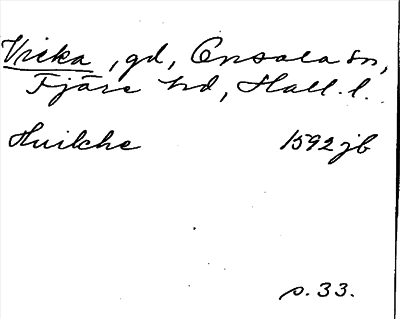 Vrika, gd, Onsala sn,
Fjäre hd, Hall. l.
Huilche 1592 jb
s. 33.